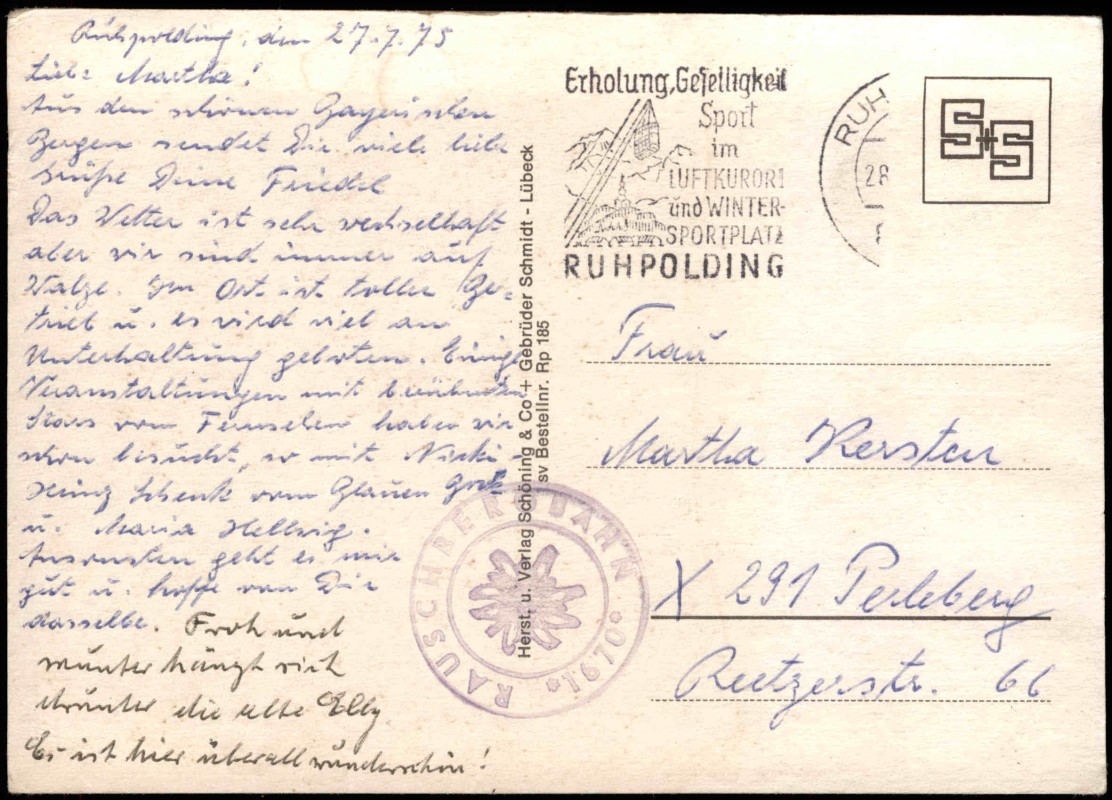 Ruhpolding, den 27.7.75
Liebe Martha!
Aus den schönen Bayerischen
Bergen sendet Dir viele liebe
Grüße Deine Friedel
Das Wetter ist sehr wechselhaft
aber wir sind immer auf
Walze. Im Ort ist toller Be-
trieb u. es wird viel an
Unterhaltung geboten. Einige
Veranstaltungen mit berühmten
Stars vom Fernsehen haben wir
schon besucht, so mit Nicki -
Heinz Schenk vom Blauen Bock
u. Maria Hellwig.
Ansonsten geht es mir
gut u. hoffe von Dir
dasselbe. Froh und
munter hängt sich
drunter die alte Elly
Es ist hier überall wunderschön!
Herst. u. Verlag Schöning & Co + Gebrüder Schmidt - Lübeck
sv Bestellnr. Rp 185
RAUSCHBERGBAHN
*1670*
Erholung, Geselligkeit
Sport
im
LUFTKURORT
und WINTER-
SPORTPLATZ
RUHPOLDING
RUH
28
S+S
Frau
Martha Kersten
X 291 Perleberg
Reetzerstr. 66